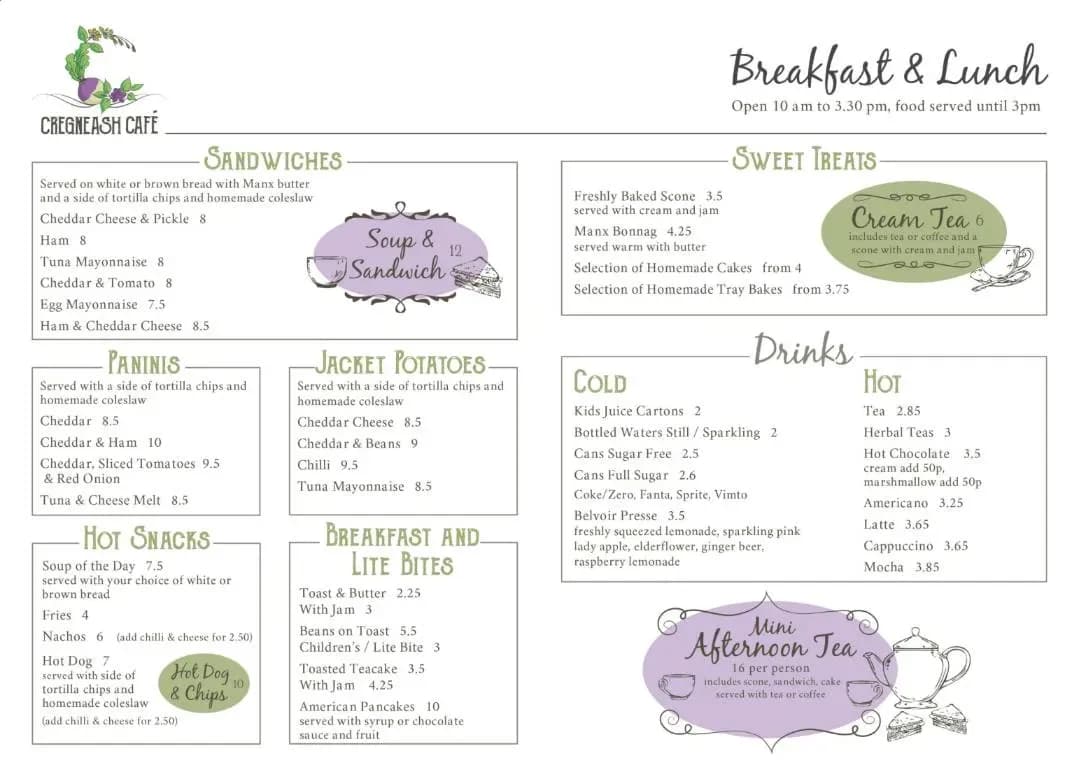 CREGNEASH CAFÉ
Breakfast & Lunch
Open 10 am to 3.30 pm, food served until 3pm
SANDWICHES
Served on white or brown bread with Manx butter
and a side of tortilla chips and homemade coleslaw
Cheddar Cheese & Pickle 8
Ham 8
Tuna Mayonnaise 8
Cheddar & Tomato 8
Egg Mayonnaise 7.5
Ham & Cheddar Cheese 8.5
Soup &
Sandwich 12
PANINIS
Served with a side of tortilla chips and
homemade coleslaw
Cheddar 8.5
Cheddar & Ham 10
Cheddar, Sliced Tomatoes 9.5
& Red Onion
Tuna & Cheese Melt 8.5
JACKET POTATOES
Served with a side of tortilla chips and
homemade coleslaw
Cheddar Cheese 8.5
Cheddar & Beans 9
Chilli 9.5
Tuna Mayonnaise 8.5
HOT SNACKS
Soup of the Day 7.5
served with your choice of white or
brown bread
Fries 4
Nachos 6 (add chilli & cheese for 2.50)
Hot Dog 7
served with side of
tortilla chips and
homemade coleslaw
(add chilli & cheese for 2.50)
Hot Dog
& Chips 10
BREAKFAST AND
LITE BITES
Toast & Butter 2.25
With Jam 3
Beans on Toast 5.5
Children's / Lite Bite 3
Toasted Teacake 3.5
With Jam 4.25
American Pancakes 10
served with syrup or chocolate
sauce and fruit
SWEET TREATS
Freshly Baked Scone 3.5
served with cream and jam
Manx Bonnag 4.25
served warm with butter
Selection of Homemade Cakes from 4
Selection of Homemade Tray Bakes from 3.75
Cream Tea 6
includes tea or coffee and a
scone with cream and jam
Drinks
COLD
Kids Juice Cartons 2
Bottled Waters Still / Sparkling 2
Cans Sugar Free 2.5
Cans Full Sugar 2.6
Coke/Zero, Fanta, Sprite, Vimto
Belvoir Presse 3.5
freshly squeezed lemonade, sparkling pink
lady apple, elderflower, ginger beer,
raspberry lemonade
HOT
Tea 2.85
Herbal Teas 3
Hot Chocolate 3.5
cream add 50p,
marshmallow add 50p
Americano 3.25
Latte 3.65
Cappuccino 3.65
Mocha 3.85
Mini
Afternoon Tea
16 per person
includes scone, sandwich, cake
served with tea or coffee